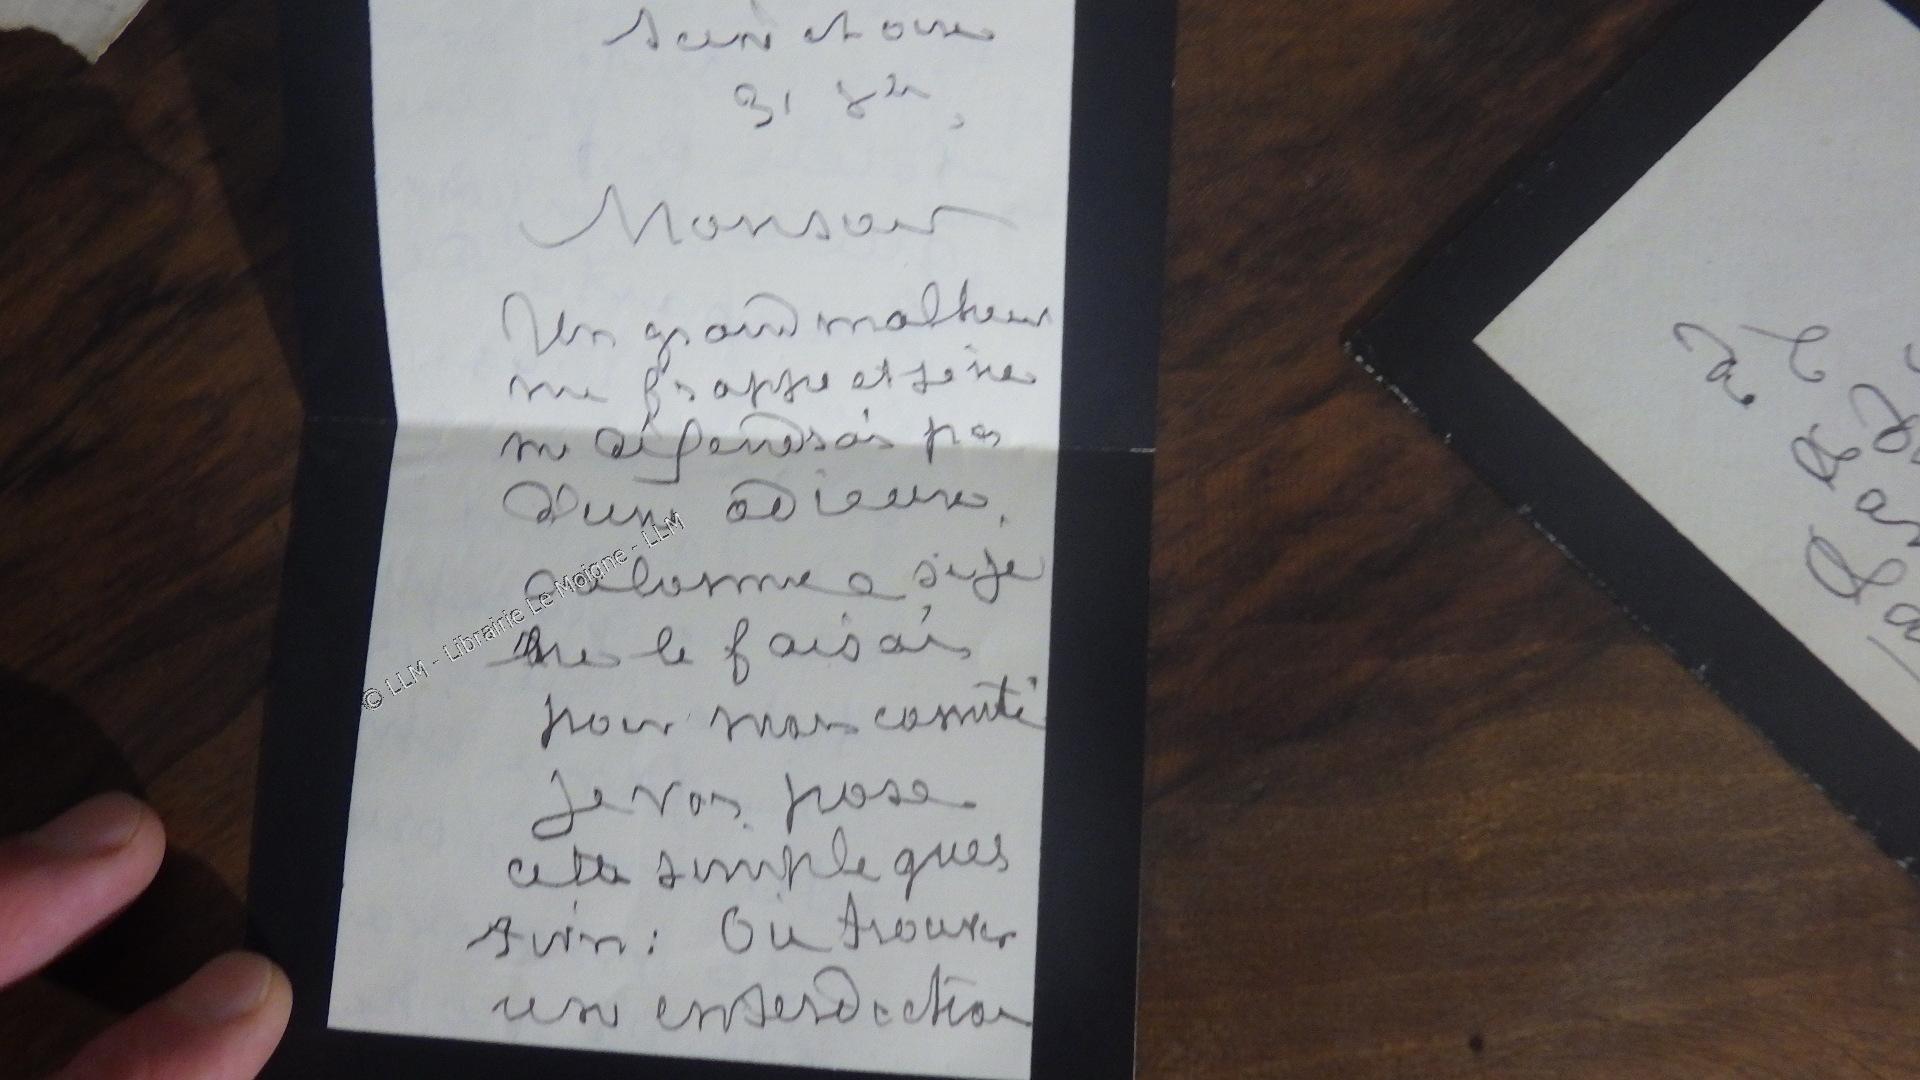 Seine et Oise
31 8bre
Monsieur
Un grand malheur
me frappe et je ne
me défendrais pas
d'une odieuse
calomnie si je
ne le faisais
pour mon comité
Je vous pose
cette simple ques
tion : Où trouver
une interdiction
© LLM - Librairie Le Moigne - LLM
à